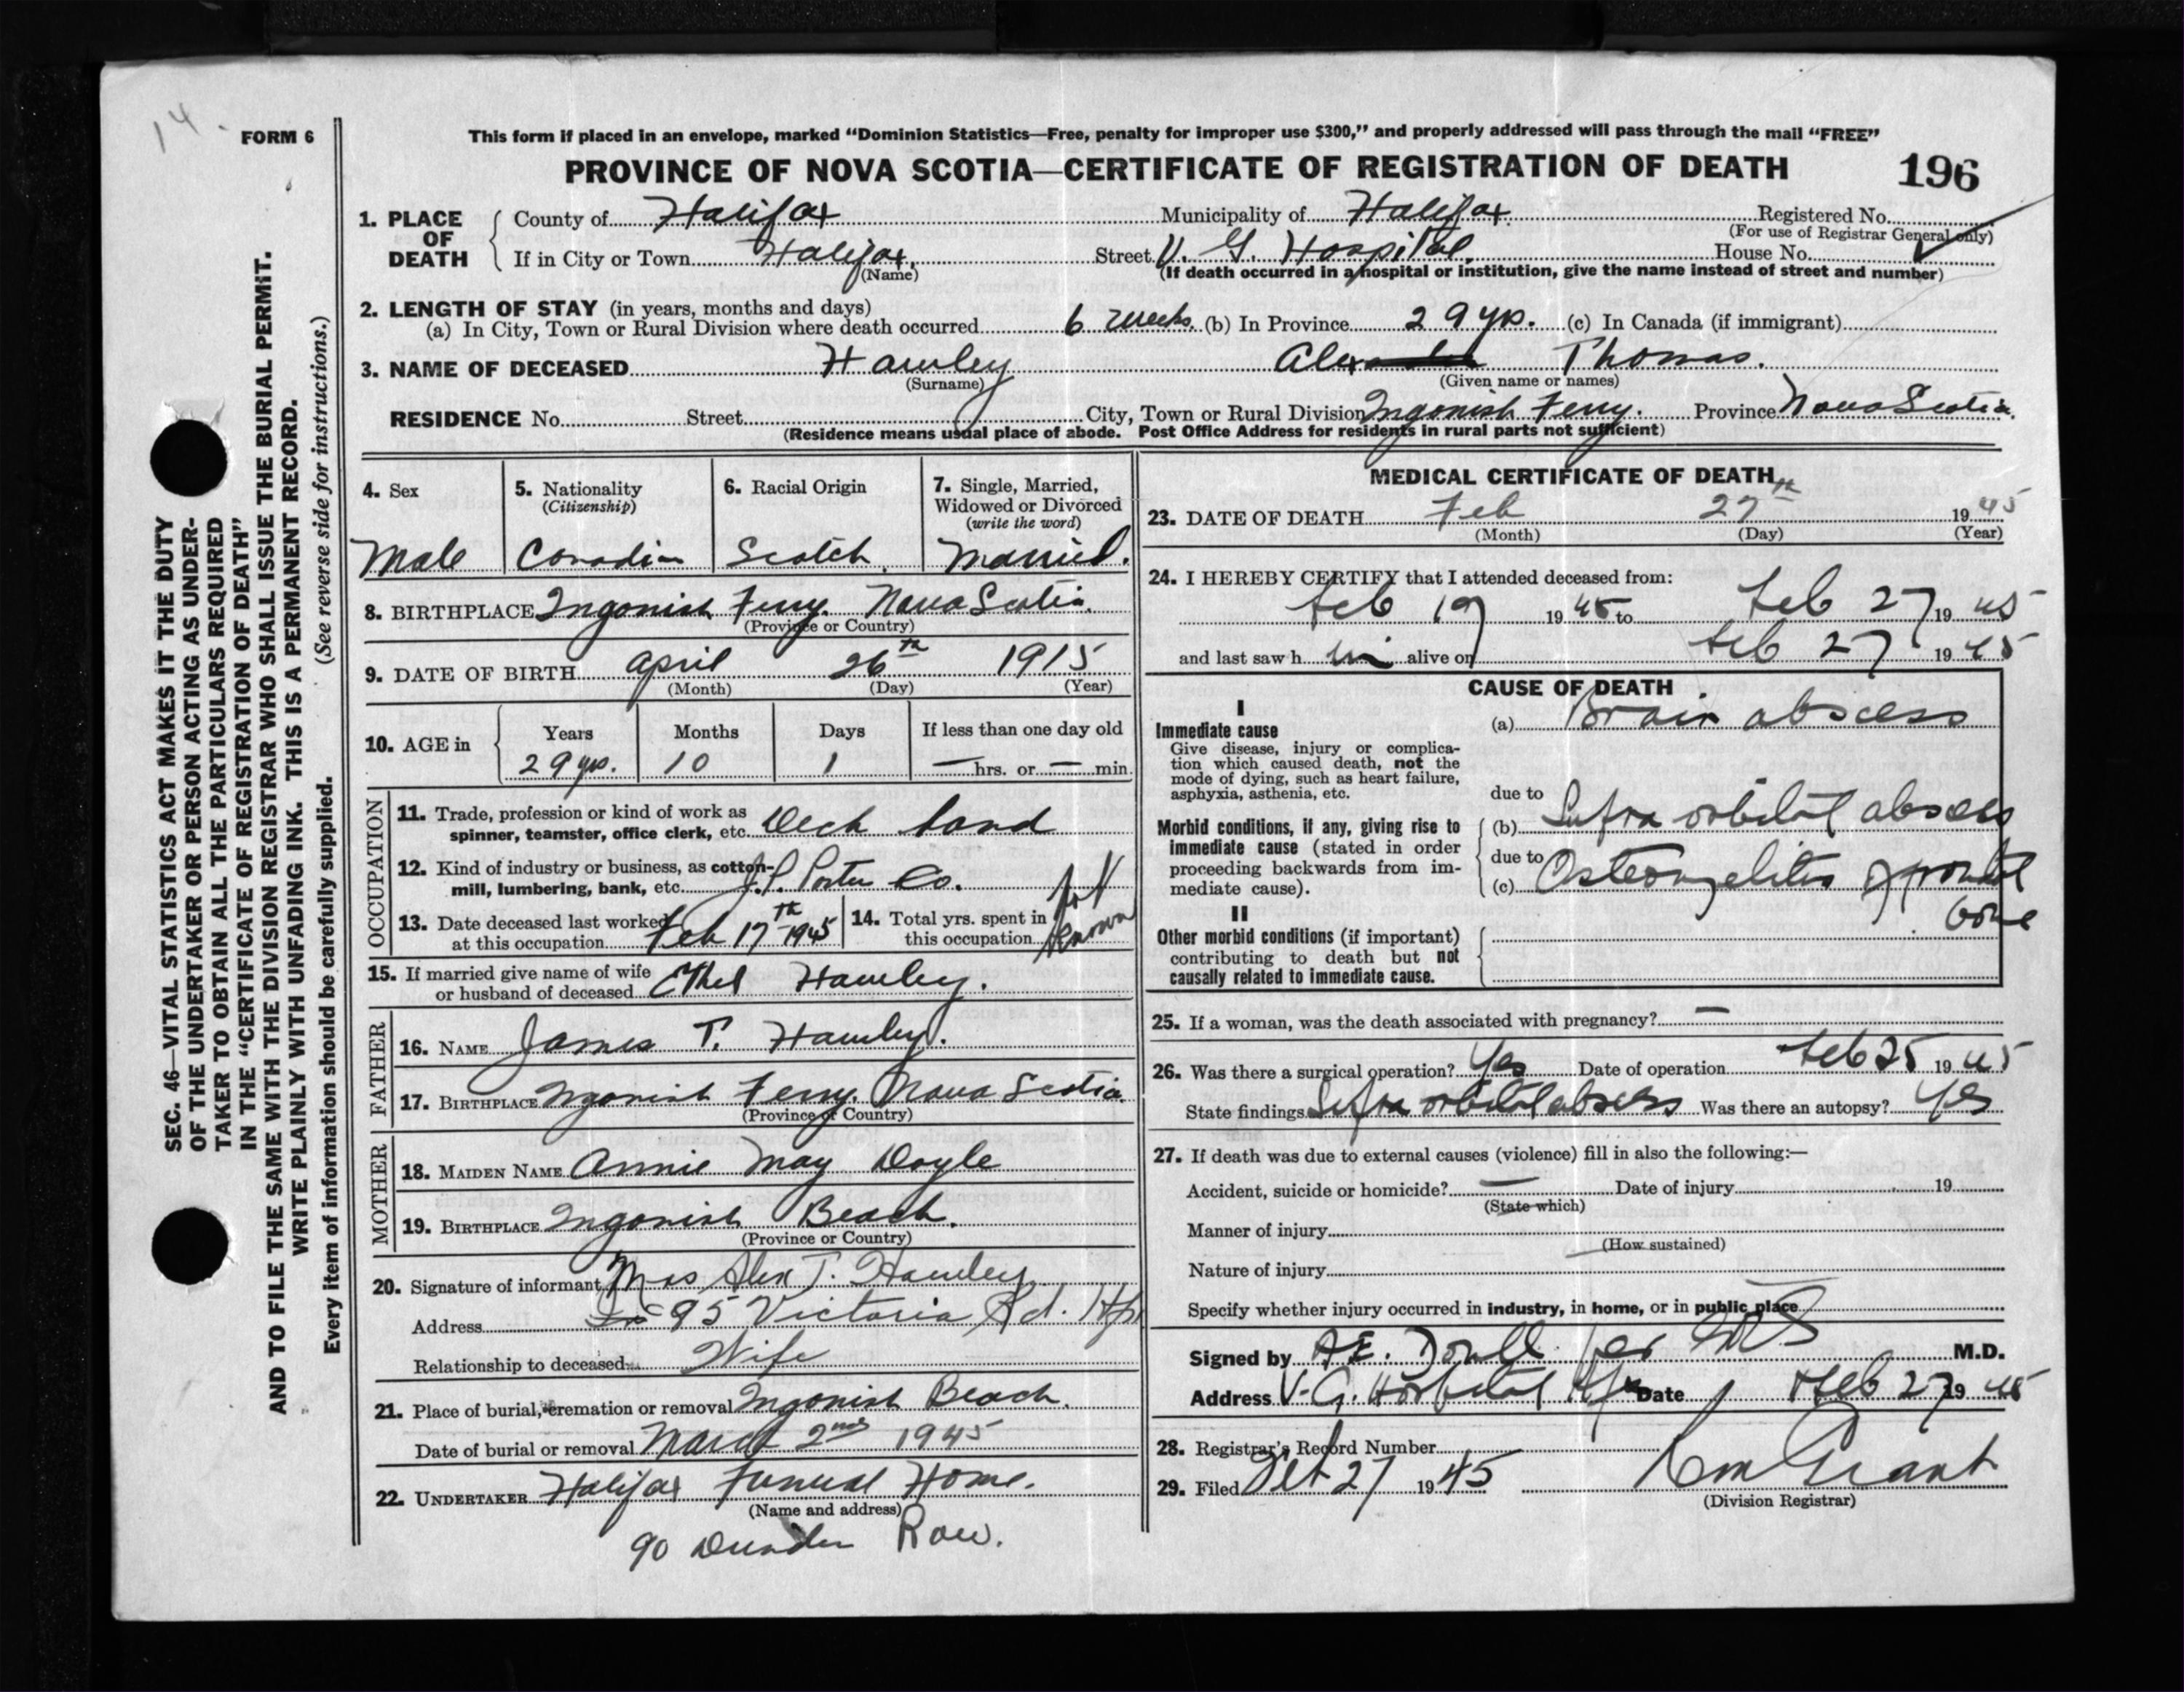 14.
FORM 6
This form if placed in an envelope, marked “Dominion Statistics—Free, penalty for improper use $300,” and properly addressed will pass through the mail “FREE”
PROVINCE OF NOVA SCOTIA—CERTIFICATE OF REGISTRATION OF DEATH
196
SEC. 46—VITAL STATISTICS ACT MAKES IT THE DUTY
OF THE UNDERTAKER OR PERSON ACTING AS UNDER-
TAKER TO OBTAIN ALL THE PARTICULARS REQUIRED
IN THE “CERTIFICATE OF REGISTRATION OF DEATH”
AND TO FILE THE SAME WITH THE DIVISION REGISTRAR WHO SHALL ISSUE THE BURIAL PERMIT.
WRITE PLAINLY WITH UNFADING INK. THIS IS A PERMANENT RECORD.
(See reverse side for instructions.)
Every item of information should be carefully supplied.
1. PLACE OF DEATH
County of Halifax Municipality of Halifax Registered No.
(For use of Registrar General only)
If in City or Town Halifax, Street V. G. Hospital. House No.
(Name) (If death occurred in a hospital or institution, give the name instead of street and number)
2. LENGTH OF STAY (in years, months and days)
(a) In City, Town or Rural Division where death occurred 6 weeks. (b) In Province 29 yrs. (c) In Canada (if immigrant)
3. NAME OF DECEASED Hawley Alex Thomas.
(Surname) (Given name or names)
RESIDENCE No. Street City, Town or Rural Division Ingonish Ferry. Province Nova Scotia.
(Residence means usual place of abode. Post Office Address for residents in rural parts not sufficient)
4. Sex Male
5. Nationality (Citizenship) Canadian
6. Racial Origin Scotch.
7. Single, Married, Widowed or Divorced (write the word) Married.
8. BIRTHPLACE Ingonish Ferry. Nova Scotia.
(Province or Country)
9. DATE OF BIRTH April 26th 1915
(Month) (Day) (Year)
10. AGE in Years Months Days If less than one day old
29 yrs. 10 1 — hrs. or — min.
OCCUPATION
11. Trade, profession or kind of work as
spinner, teamster, office clerk, etc. Deck hand
12. Kind of industry or business, as cotton-
mill, lumbering, bank, etc. J.P. Porter Co.
13. Date deceased last worked
at this occupation Feb 17th 1945
14. Total yrs. spent in
this occupation Not Known
15. If married give name of wife
or husband of deceased Ethel Hawley.
FATHER
16. NAME James T. Hawley.
17. BIRTHPLACE Ingonish Ferry. Nova Scotia.
(Province or Country)
MOTHER
18. MAIDEN NAME Annie May Doyle
19. BIRTHPLACE Ingonish Beach.
(Province or Country)
20. Signature of informant Mrs Alex T. Hawley
Address 95 Victoria Rd. Hfx
Relationship to deceased Wife
21. Place of burial, cremation or removal Ingonish Beach.
Date of burial or removal March 2nd 1945
22. UNDERTAKER Halifax Funeral Home.
(Name and address)
90 Row.
MEDICAL CERTIFICATE OF DEATH
23. DATE OF DEATH Feb 27th 1945
(Month) (Day) (Year)
24. I HEREBY CERTIFY that I attended deceased from:
Feb 19 1945 to Feb 27 1945
and last saw him alive on Feb 27 1945
CAUSE OF DEATH
I
Immediate cause (a) Brain abscess
Give disease, injury or complica-
tion which caused death, not the
mode of dying, such as heart failure,
asphyxia, asthenia, etc.
due to
Morbid conditions, if any, giving rise to
immediate cause (stated in order
proceeding backwards from im-
mediate cause).
(b) orbital abscess
due to
(c) Osteomyelitis of frontal
bone
II
Other morbid conditions (if important)
contributing to death but not
causally related to immediate cause.
25. If a woman, was the death associated with pregnancy? —
26. Was there a surgical operation? Yes Date of operation Feb 25 1945
State findings orbital abscess Was there an autopsy? Yes
27. If death was due to external causes (violence) fill in also the following:—
Accident, suicide or homicide? — Date of injury 19
(State which)
Manner of injury
(How sustained)
Nature of injury
Specify whether injury occurred in industry, in home, or in public place
Signed by A.E. Doull per M.D.
Address V.G. Hospital Hfx Date Feb 27 1945
28. Registrar's Record Number
29. Filed Feb 27 1945 Grant
(Division Registrar)